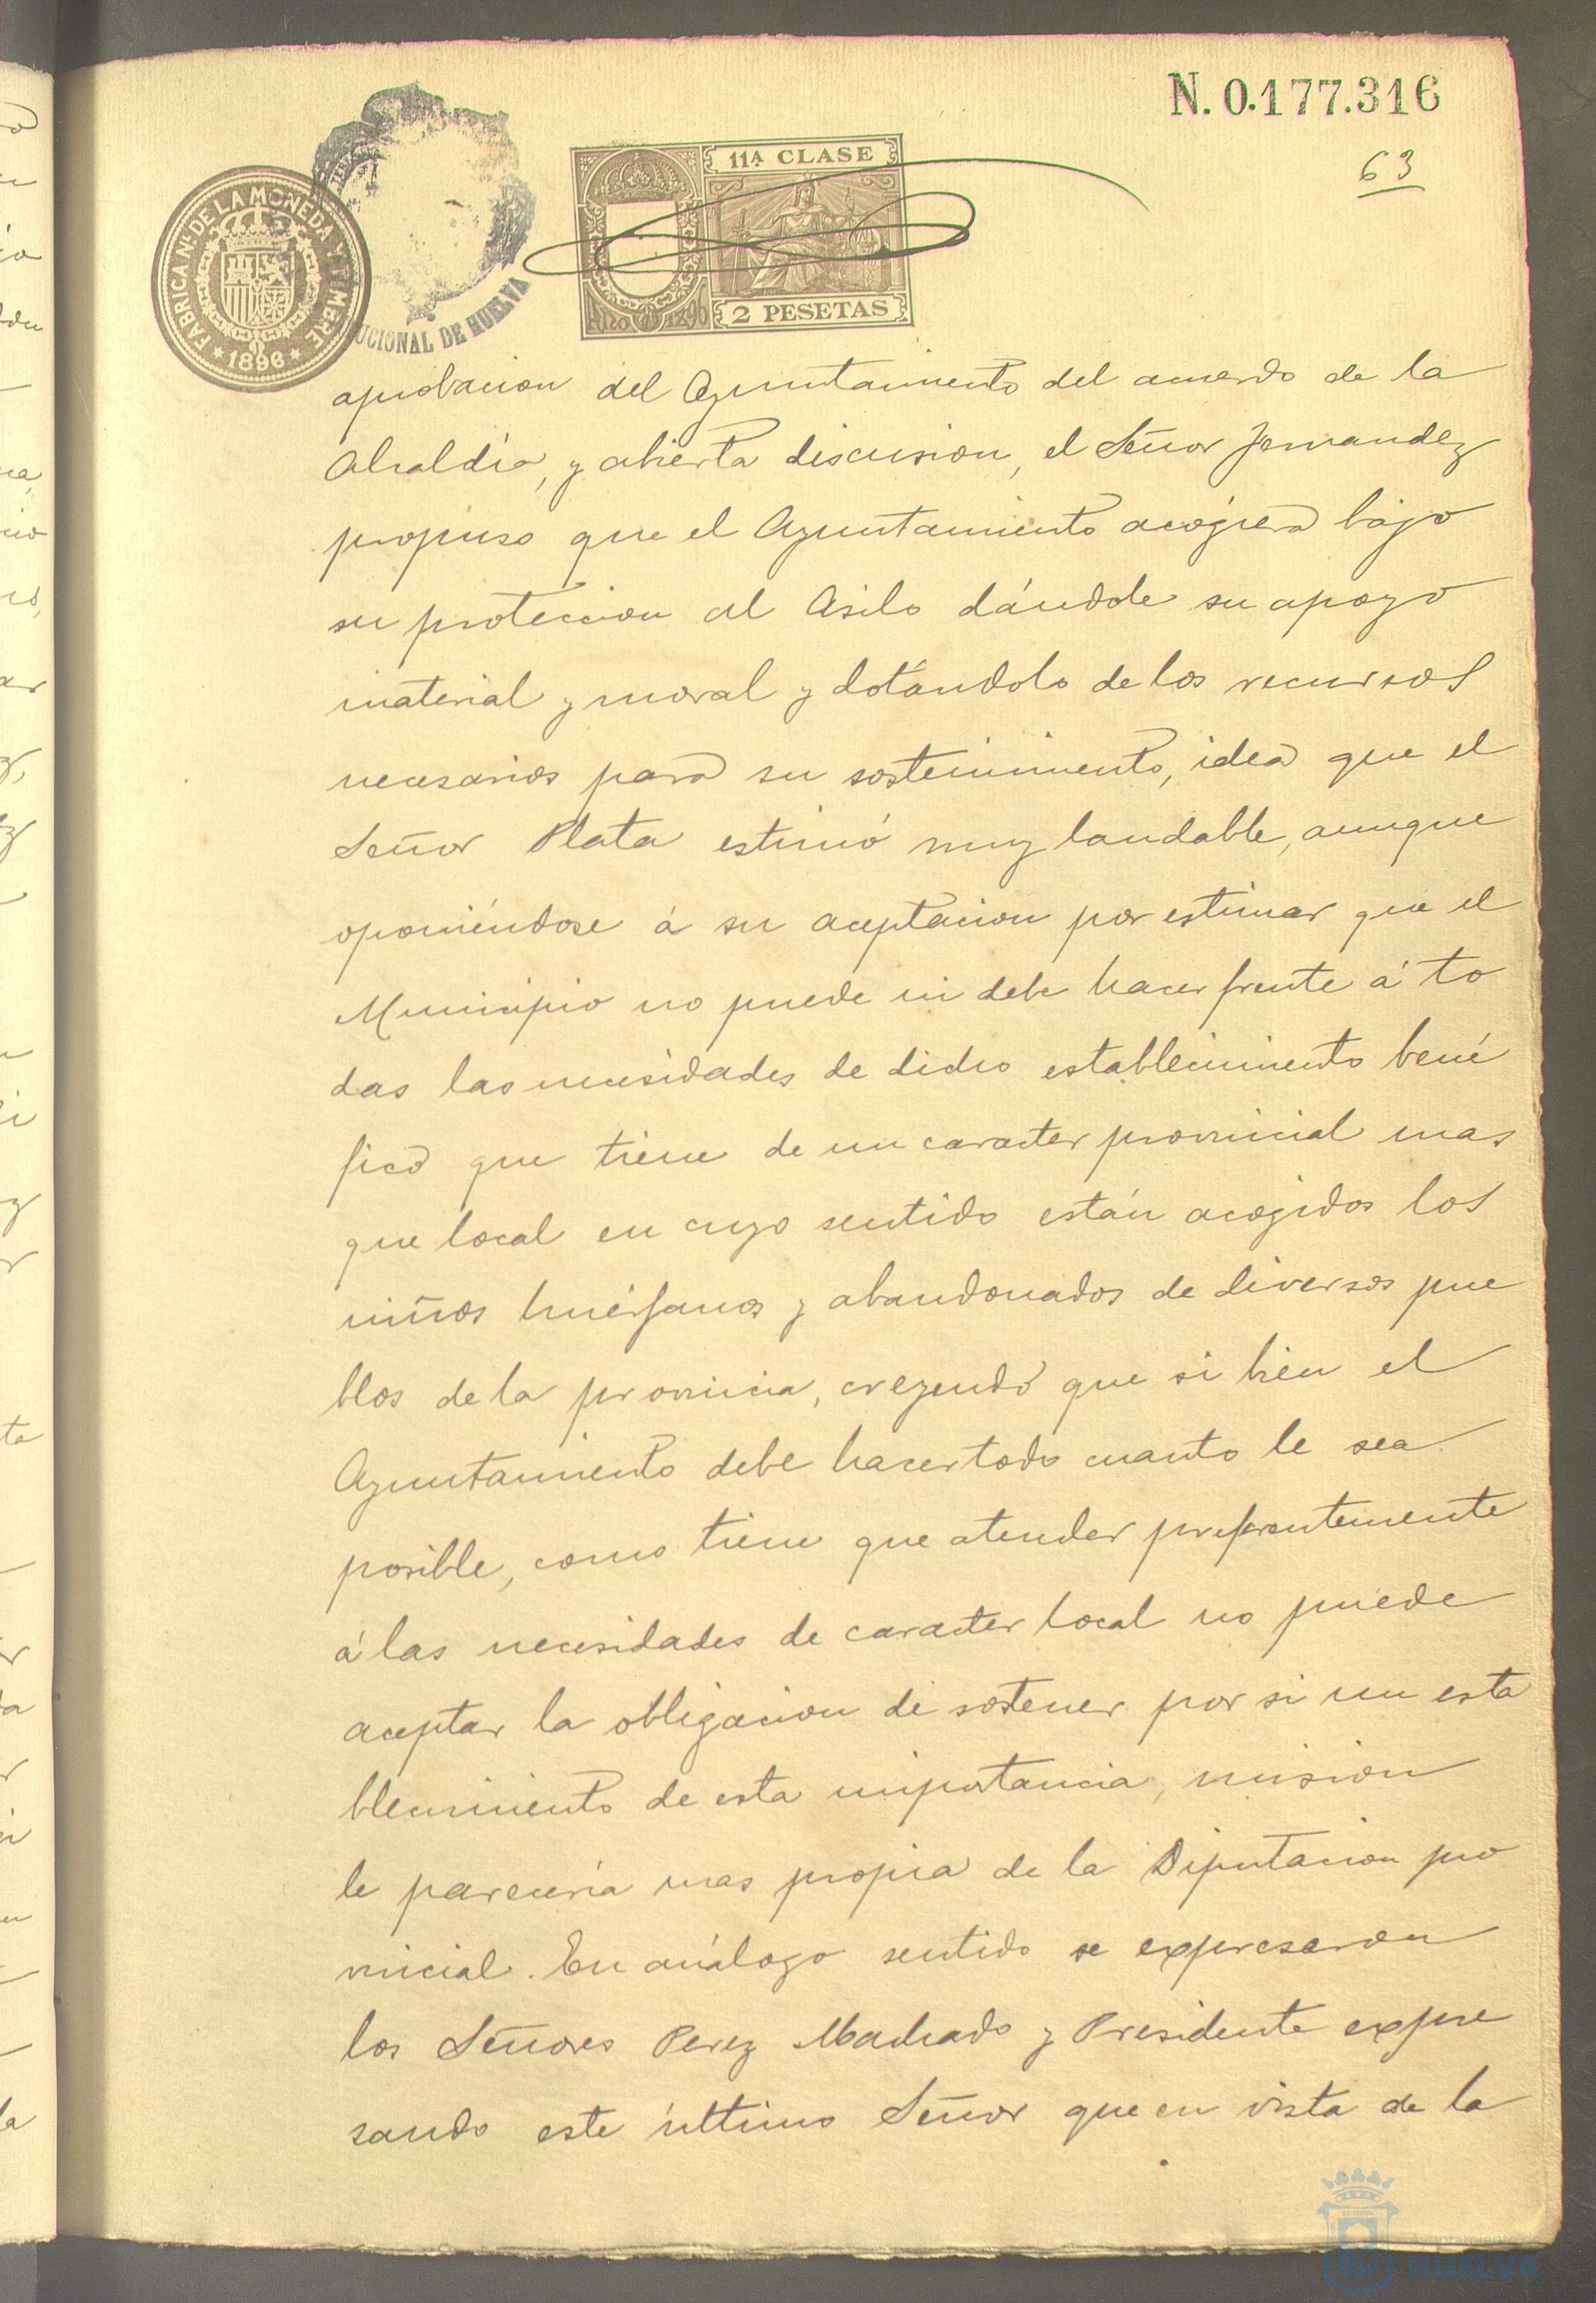 N. 0.177.316
63
FABRICA Nl. DE LA MONEDA Y TIMBRE
* 1896 *
UCIONAL DE HUELVA
11ª CLASE
2 PESETAS
aprobacion del Ayuntamiento del acuerdo de la
Alcaldía, y abierta discusion, el Señor Fernandez
propuso que el Ayuntamiento acogiera bajo
su proteccion al Asilo dándole su apoyo
material y moral y dotándolo de los recursos
necesarios para su sostenimiento, idea que el
Señor Plata estimó muy laudable, aunque
oponiéndose á su aceptacion por estimar que el
Municipio no puede ni debe hacer frente á to
das las necesidades de dicho establecimiento bené
fico que tiene de un caracter provincial mas
que local en cuyo sentido están acogidos los
niños huérfanos y abandonados de diversos pue
blos de la provincia, creyendo que si bien el
Ayuntamiento debe hacer todo cuanto le sea
posible, como tiene que atender preferentemente
á las necesidades de caracter local no puede
aceptar la obligacion de sostener por si un esta
blecimiento de esta importancia, mision
le pareceria mas propia de la Diputacion pro
vincial. En análogo sentido se expresaron
los Señores Perez Machado y Presidente expre
sando este último Señor que en vista de la
Ayuntamiento de
HUELVA